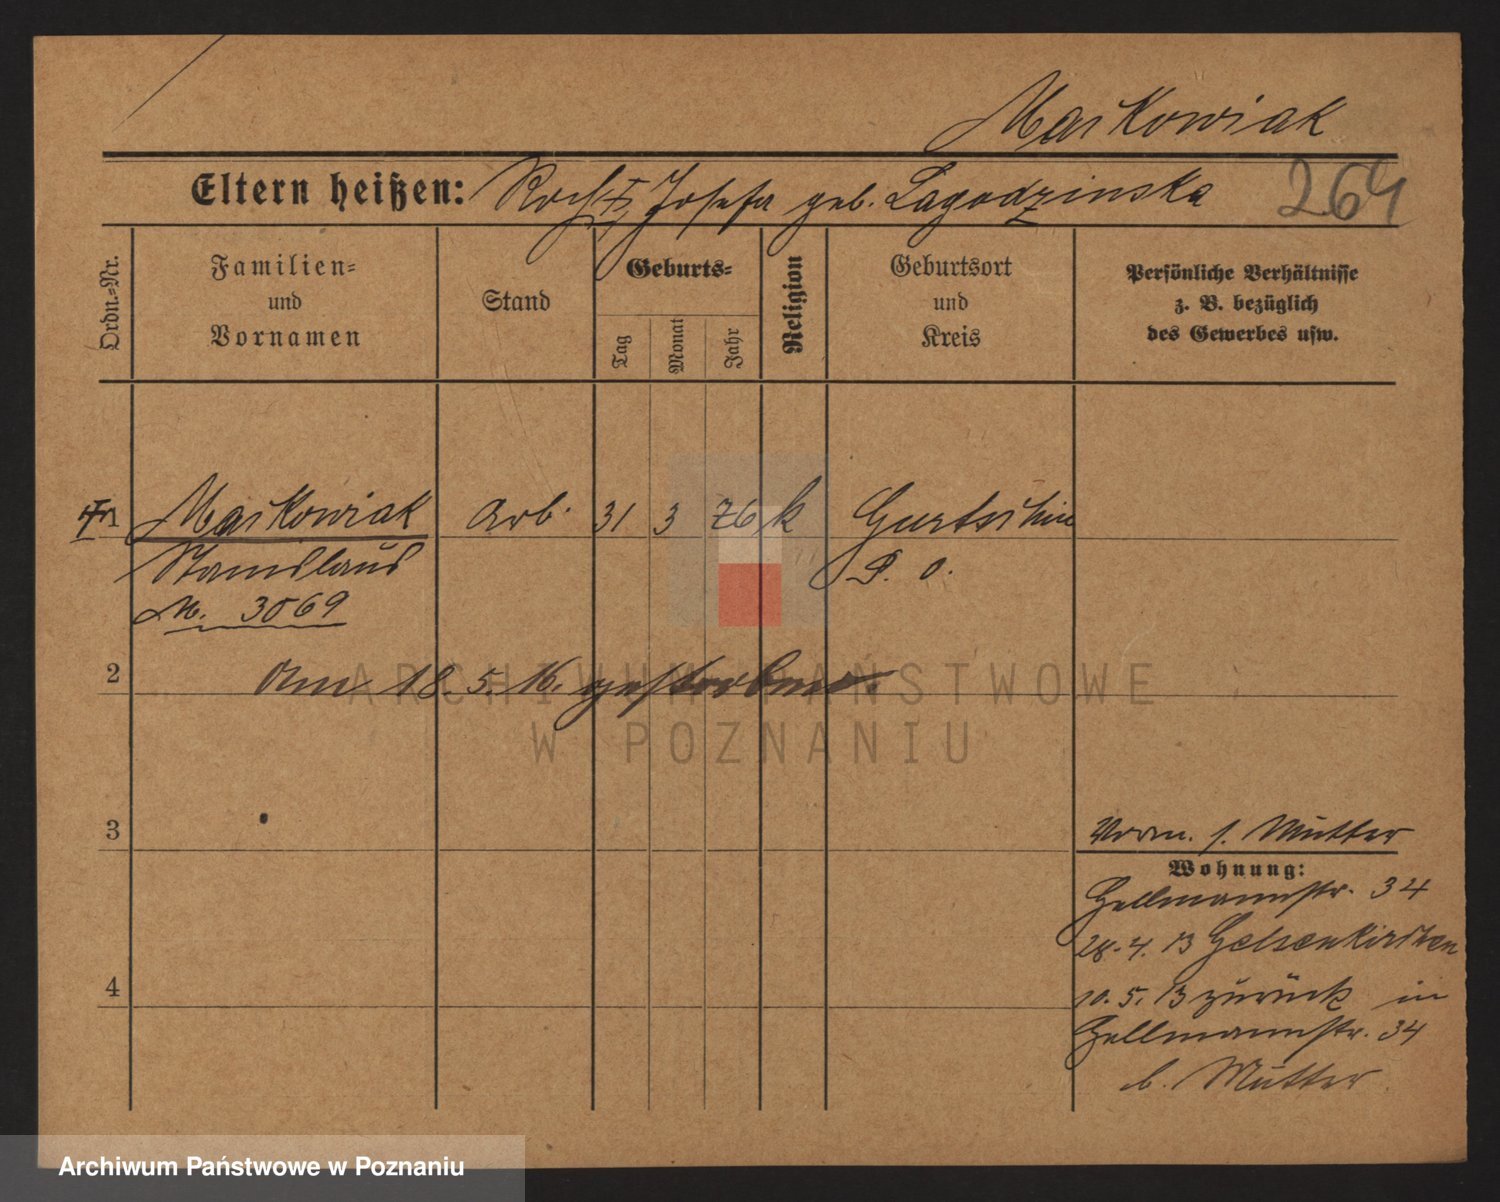 Maikowiak
Eltern heißen: Roch †, Josefa geb. Lagodzinska 264
Ordn.=Nr.
Familien=
und
Vornamen
Stand
Geburts=
Tag
Monat
Jahr
Religion
Geburtsort
und
Kreis
Persönliche Verhältnisse
z. B. bezüglich
des Gewerbes usw.
† 1 Maikowiak Arb. 31 3 76 k Gurtschin
Stanislaus P. O.
M. 3069
2 Am 18. 5. 16. gestorben.
3
Vorm. s. Mutter
Wohnung:
Hellmannstr. 34
28. 4. 13 Gelsenkirchen
4
10. 5. 13 zurück in
Hellmannstr. 34
b. Mutter
ARCHIWUM PAŃSTWOWE
W POZNANIU
Archiwum Państwowe w Poznaniu